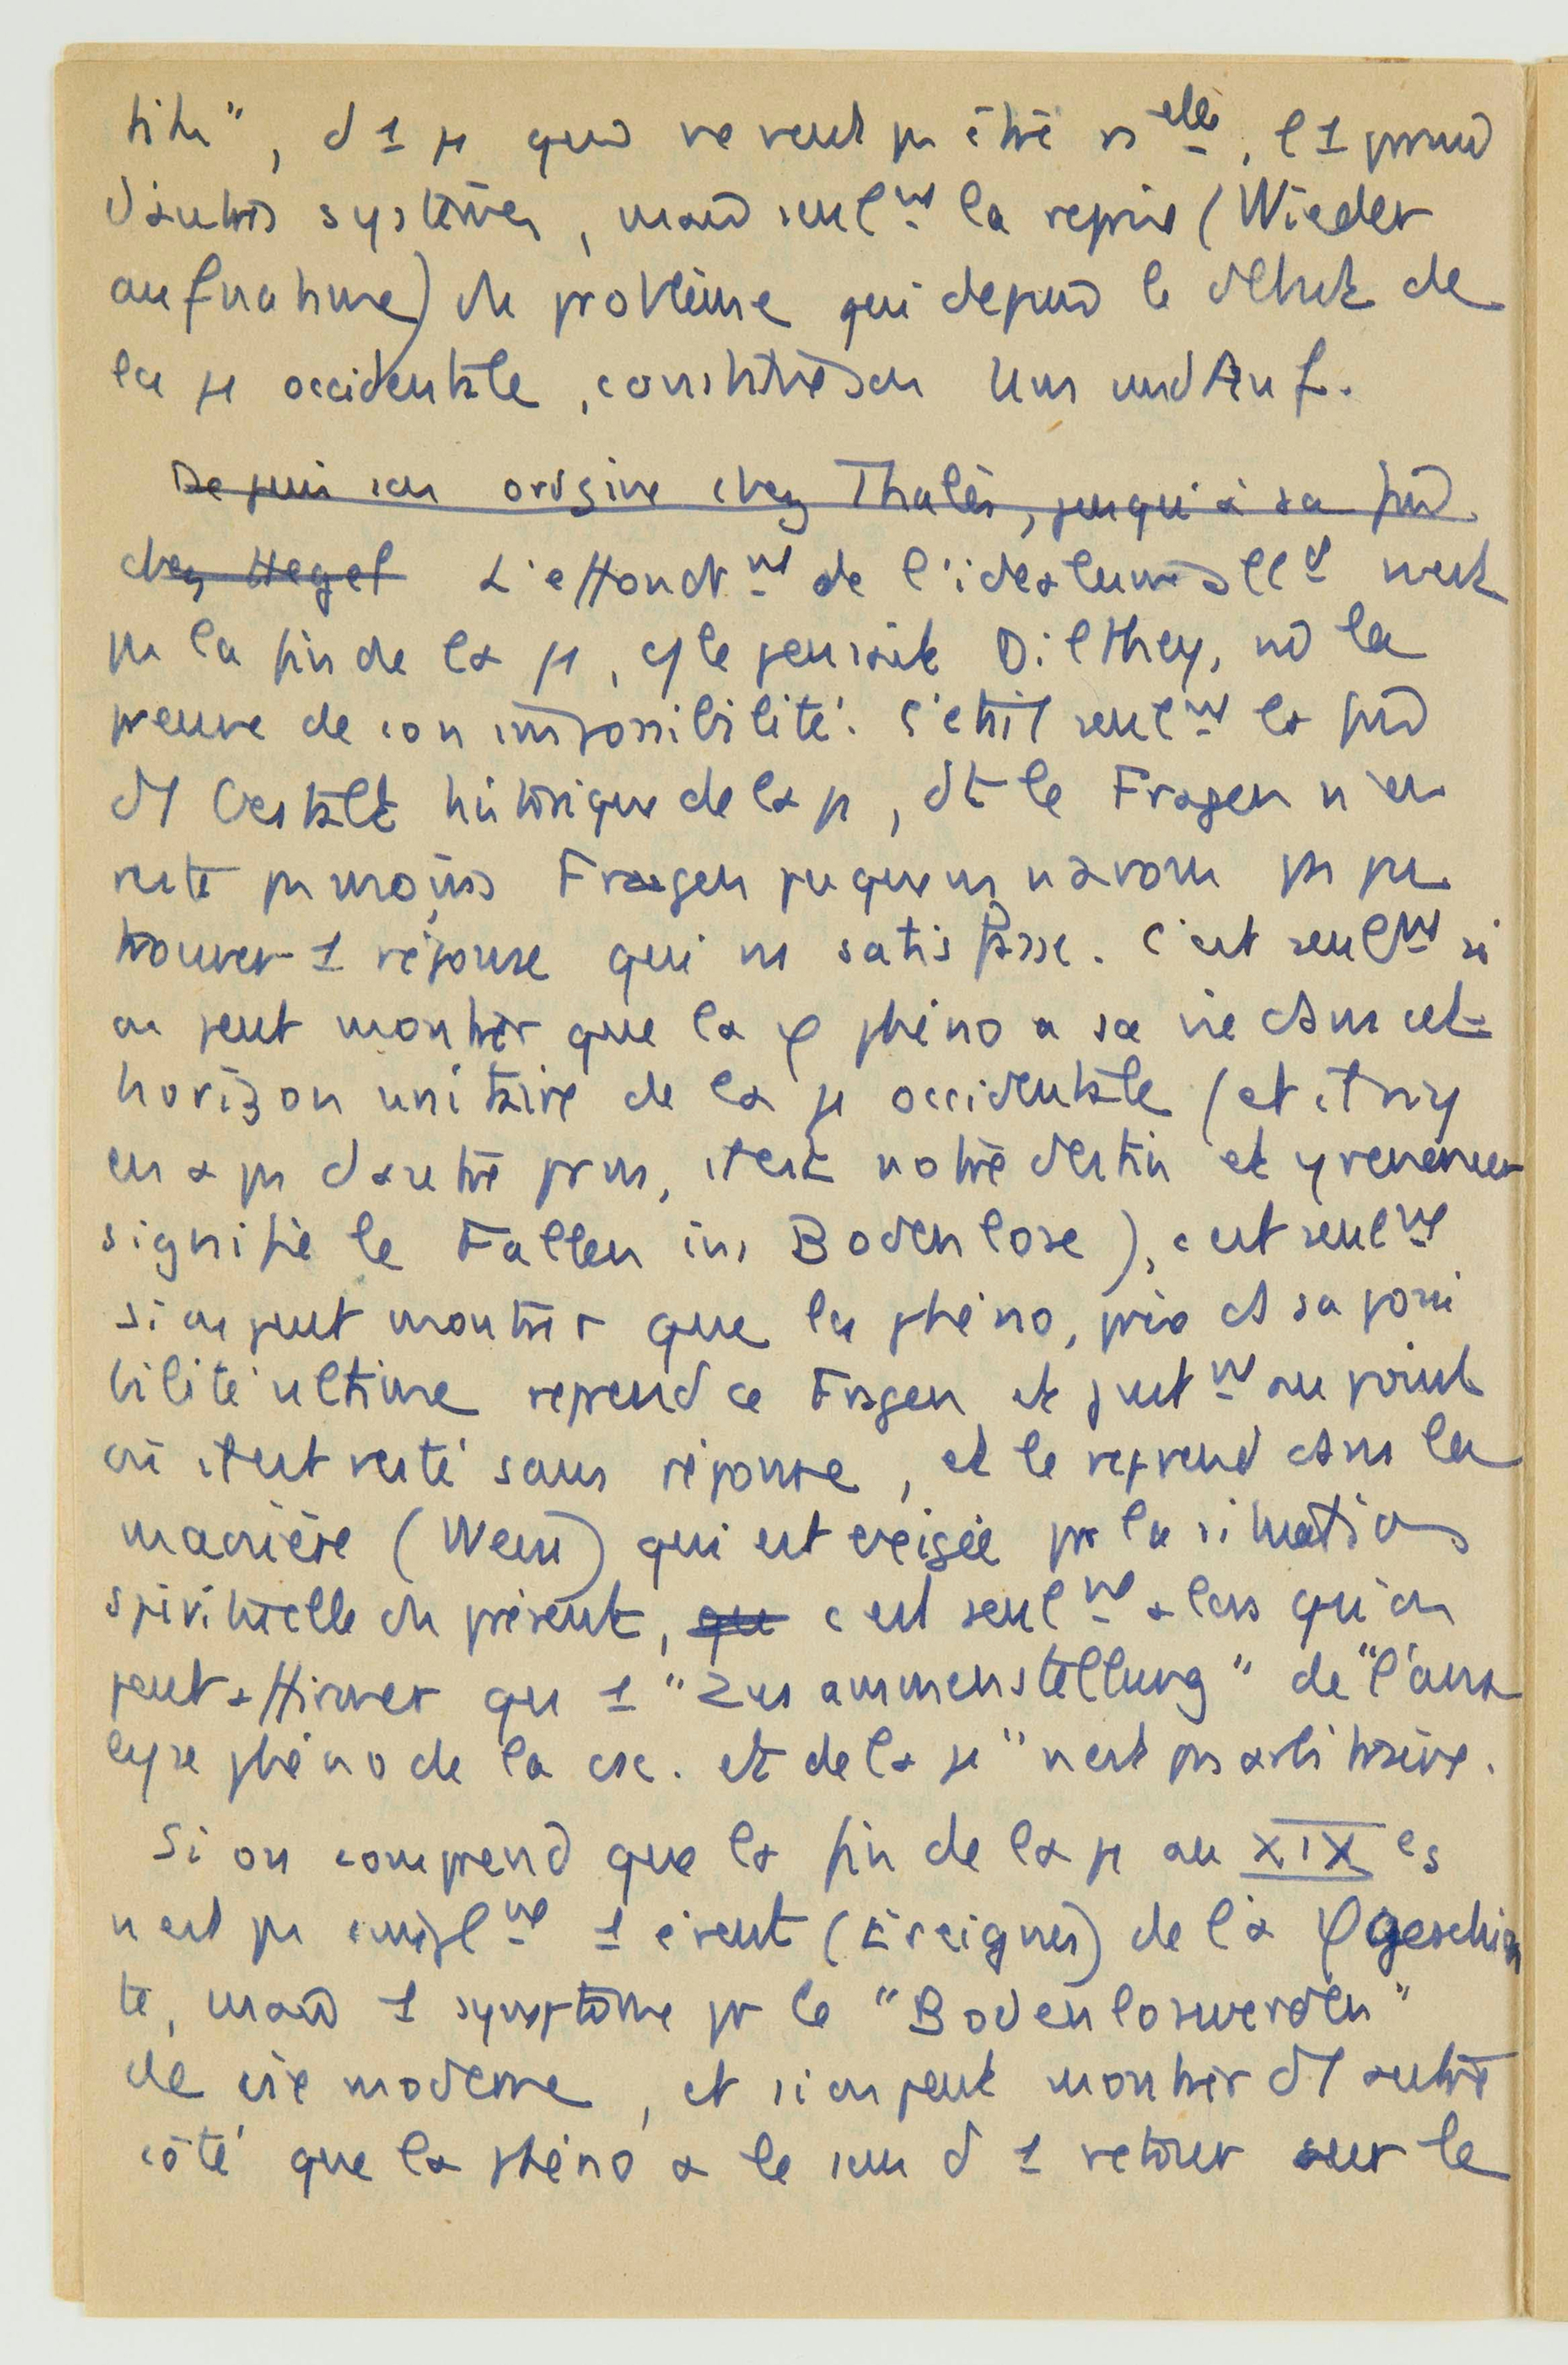 d 1 φ qui ne veut pas être nelle, à 1 parmi
d'autres systèmes, mais seulmt la reprise (Wieder
aufnahme) du problème qui depuis le début de
la φ occidentale, constitue son Um und Auf.
Depuis son origine chez Thalès, jusqu'à sa fin
chez Hegel L'effondrmt de l'idéalisme alld n'est
pas la fin de la φ, c/ le pensait Dilthey, ni la
preuve de son impossibilité. C'était seulmt la fin
d'1 Gestalt historique de la φ, dt le Fragen n'en
reste pas moins Fragen puisque ns n'avons pas pu
trouver 1 réponse qui ns satisfasse. C'est seulmt si
on peut montrer que la φ phéno a sa vie dans cet
horizon unitaire de la φ occidentale (et il n'y
en a pas d'autre pr ns, il est notre destin et y renoncer
signifie le Fallen ins Bodenlose), c'est seulmt
si on peut montrer que la phéno, prise ds sa possi
bilité ultime reprend ce Fragen et justmt au point
où il est resté sans réponse, et le reprend dans la
manière (Weise) qui est exigée par la situation
spirituelle du présent, que c'est seulmt alors qu'on
peut affirmer qu'1 "Zusammenstellung" de "l'ana
lyse phéno de la csc. et de la φ" n'est pas arbitraire.
Si on comprend que la fin de la φ au XIX es
n'est pas simplmt 1 évent (Ereignis) de la φgeschich
te, mais 1 symptôme pr le "Bodenloswerden"
de vie moderne, et si on peut montrer d'1 autre
côté que la phéno a le sens d'1 retour sur le